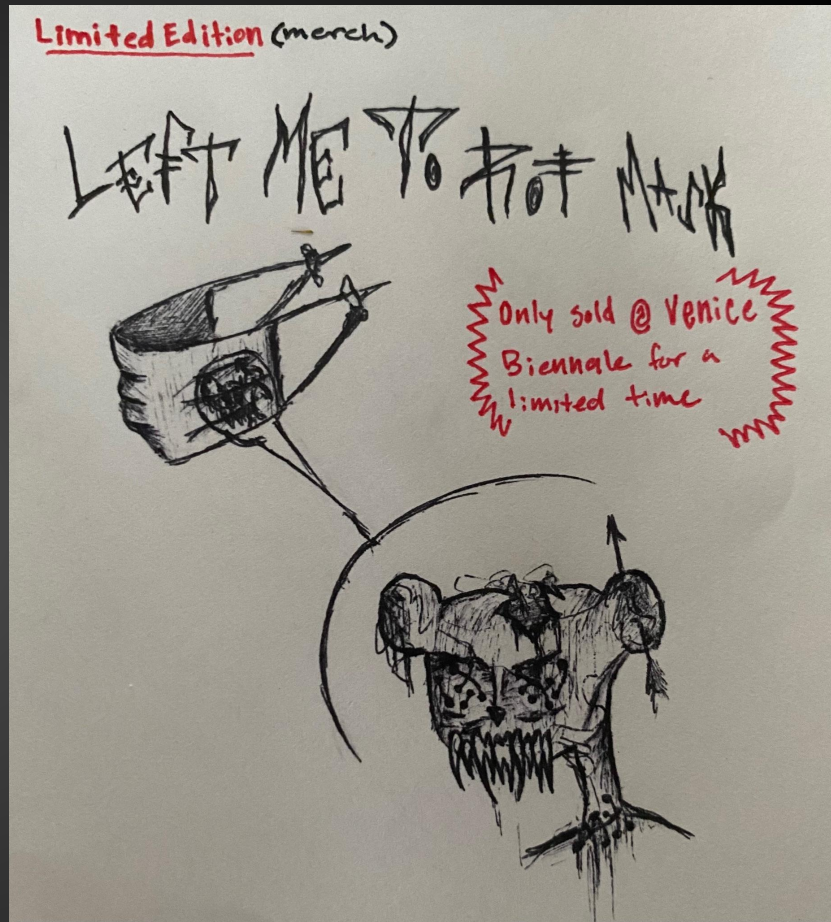 Limited Edition (merch)
LEFT ME To Rot MASK
Only sold @ Venice
Biennale for a
limited time